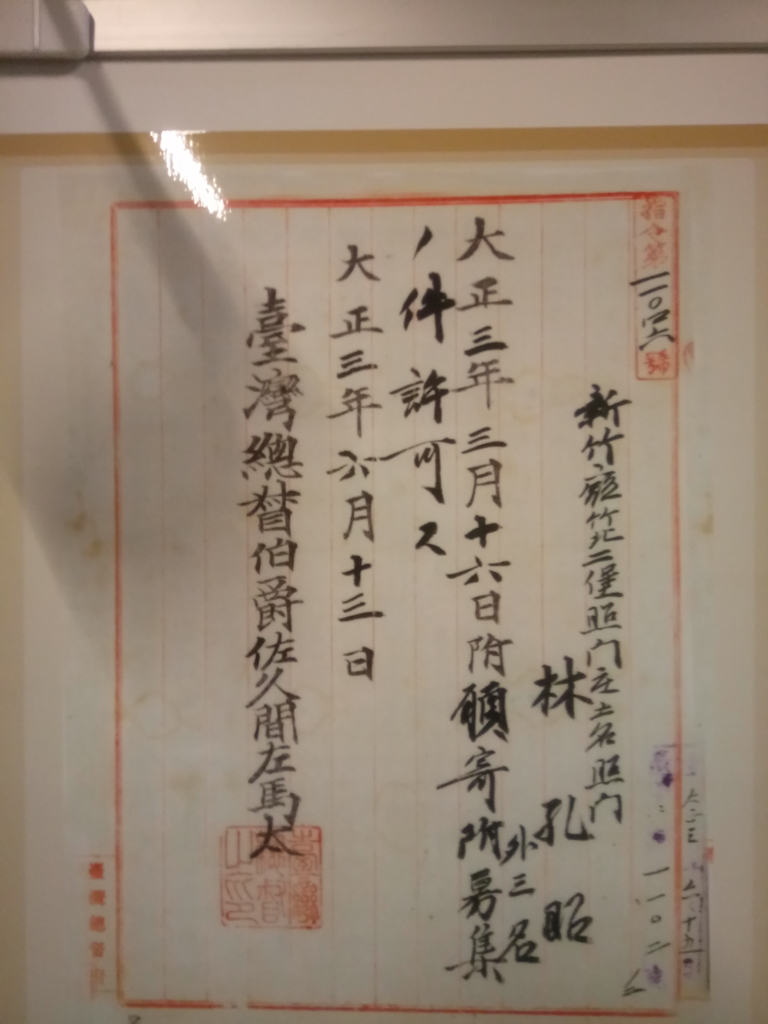 指令第一一〇四六號
新竹廳竹北二堡照门庄土名照门
林孔昭
外三名
大正三年三月十六日附願寄附募集
ノ件許可ス
大正三年六月十三日
臺灣總督伯爵佐久間左馬太
臺灣總督府